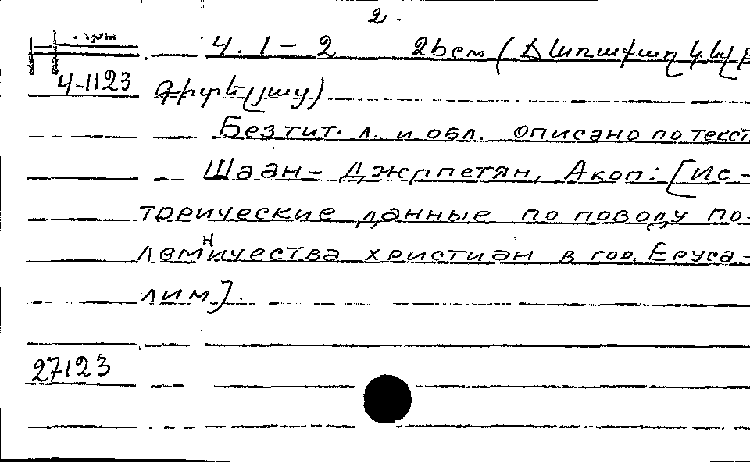 2.
Ч. 1 - 2 26 см (Ճ
4-1123
գիտելյաց)
Без тит. л. и обл. описано по текст
Шаан-Джрпетян, Акоп: [Ис-
торические данные по поводу по-
ломничества христиан в гор. Еруса-
лим.]
27123